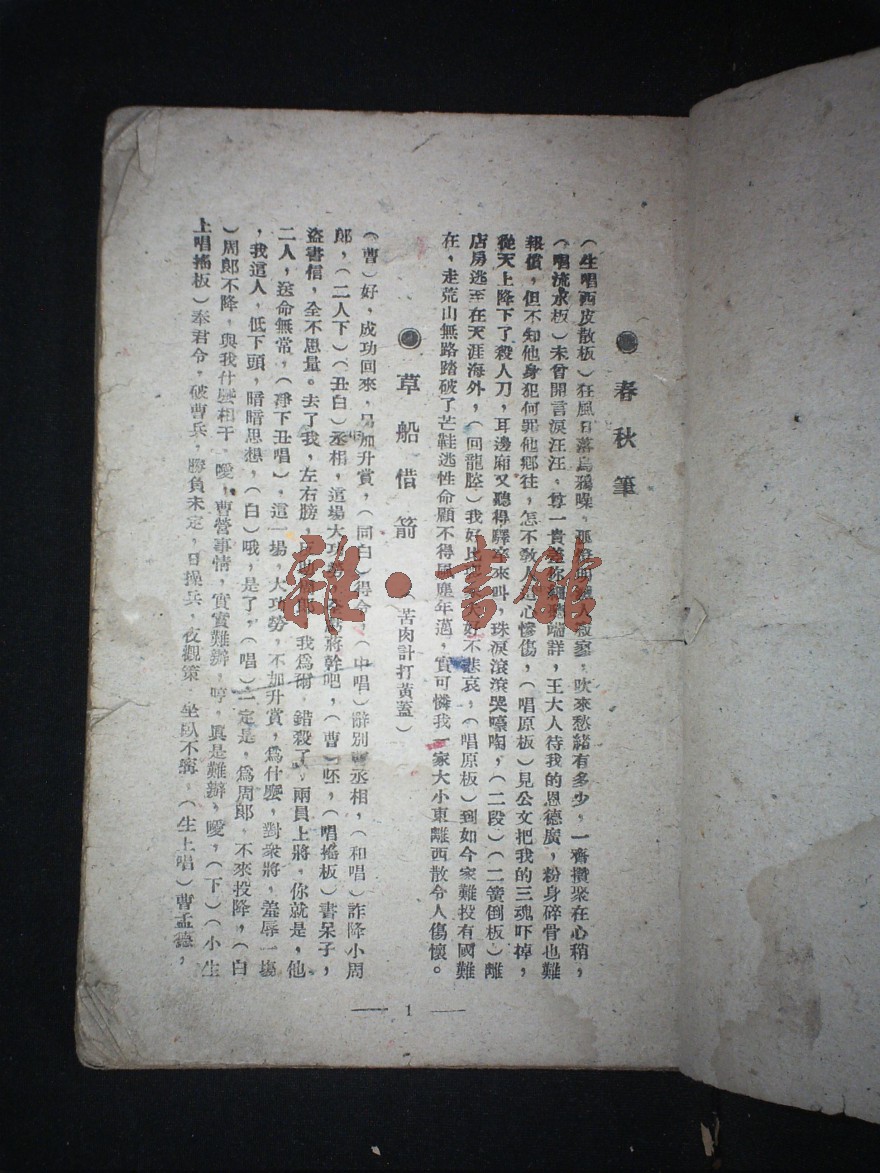 ●春秋筆
(生唱西皮散板)狂風日落烏鴉噪,人寂寥,吹來愁緒有多少,一齊攢聚在心稍,
(唱流水板)未曾開言淚汪汪、尊一貴差你細聽端詳,王大人待我的恩德廣,粉身碎骨也難
報償,但不知他身犯何罪他鄉往,怎不教人心慘傷,(唱原板)見公文把我的三魂吓掉,
從天上降下了殺人刀,耳邊廂又聽得驛來叫、珠淚滾滾哭嚎啕,(二段)(二簧倒板)離
店房逃至在天涯海外,(回龍腔)我好比好不悲哀,(唱原板)到如今家難投有國難
在,走荒山無路踏破了芒鞋逃性命顧不得風塵年邁,實可憐我一家大小東離西散令人傷懷。
●草船借箭(苦肉計打黃蓋)
(曹)好,成功回來,另加升賞,(同白)得令(中唱)辭別丞相,(和唱)詐降小周
郎,(二人下)(丑白)丞相,這場大功蔣幹吧,(曹)呸,(唱搖板)書呆子,
盜書信,全不思量。去了我,左右膀,我爲爾、錯殺了,兩員上將,你就是,他
二人,送命無常,(淨下丑唱),這一場,大功勞,不加升賞,爲什麼,對衆將,羞辱一塲
,我這人,低下頭,暗暗思想,(白)哦,是了,(唱)一定是,爲周郎,不來投降,(白
)周郎不降,與我什麼相干、噯,曹營事情,實實難辦,哼,眞是難辦,噯,(下)(小生
上唱搖板)奉君令,破曹兵,勝負未定,日操兵,夜觀策、坐臥不寧,(生上唱)曹孟德,
— 1 —
雜·書館